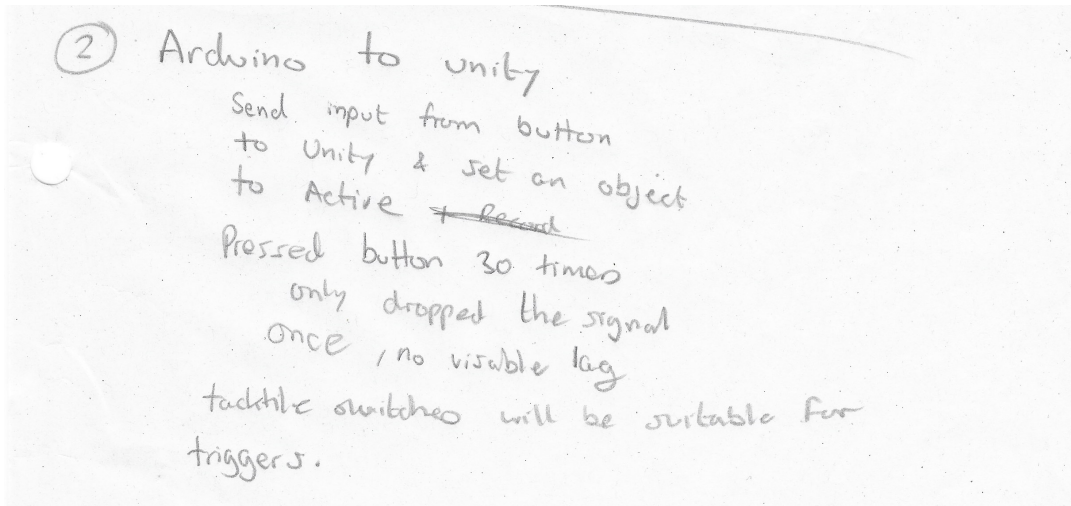 2 Arduino to unity
Send input from button
to Unity & set an object
to Active + Record
Pressed button 30 times
only dropped the signal
once, no visable lag
tacktile switches will be suitable for
triggers.